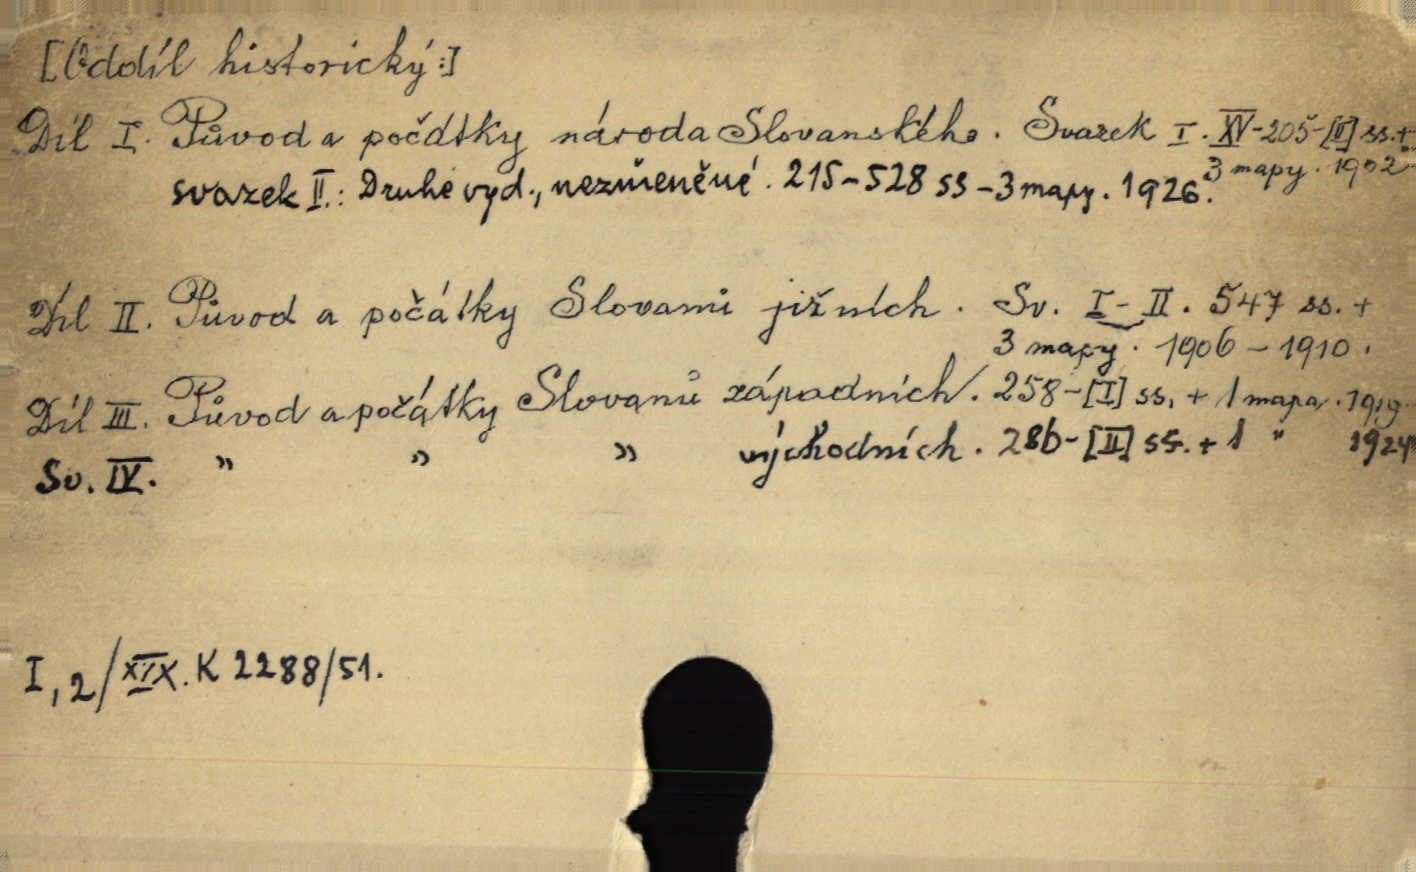 [Oddíl historický:]
Díl I. Původ a počátky národa Slovanského. Svazek I. XV-205-[II] ss.+
3 mapy. 1902
svazek II.: Druhé vyd., nezměněné. 215-528 ss - 3 mapy. 1926.
Díl II. Původ a počátky Slovanů jižních. Sv. I-II. 547 ss. +
3 mapy. 1906-1910.
Díl III. Původ a počátky Slovanů západních. 258-[I] ss. + 1 mapa. 1919
Sv. IV. " " " východních. 286-[II] ss. + 1 " 1924
I, 2/XIX. K 2288/51.